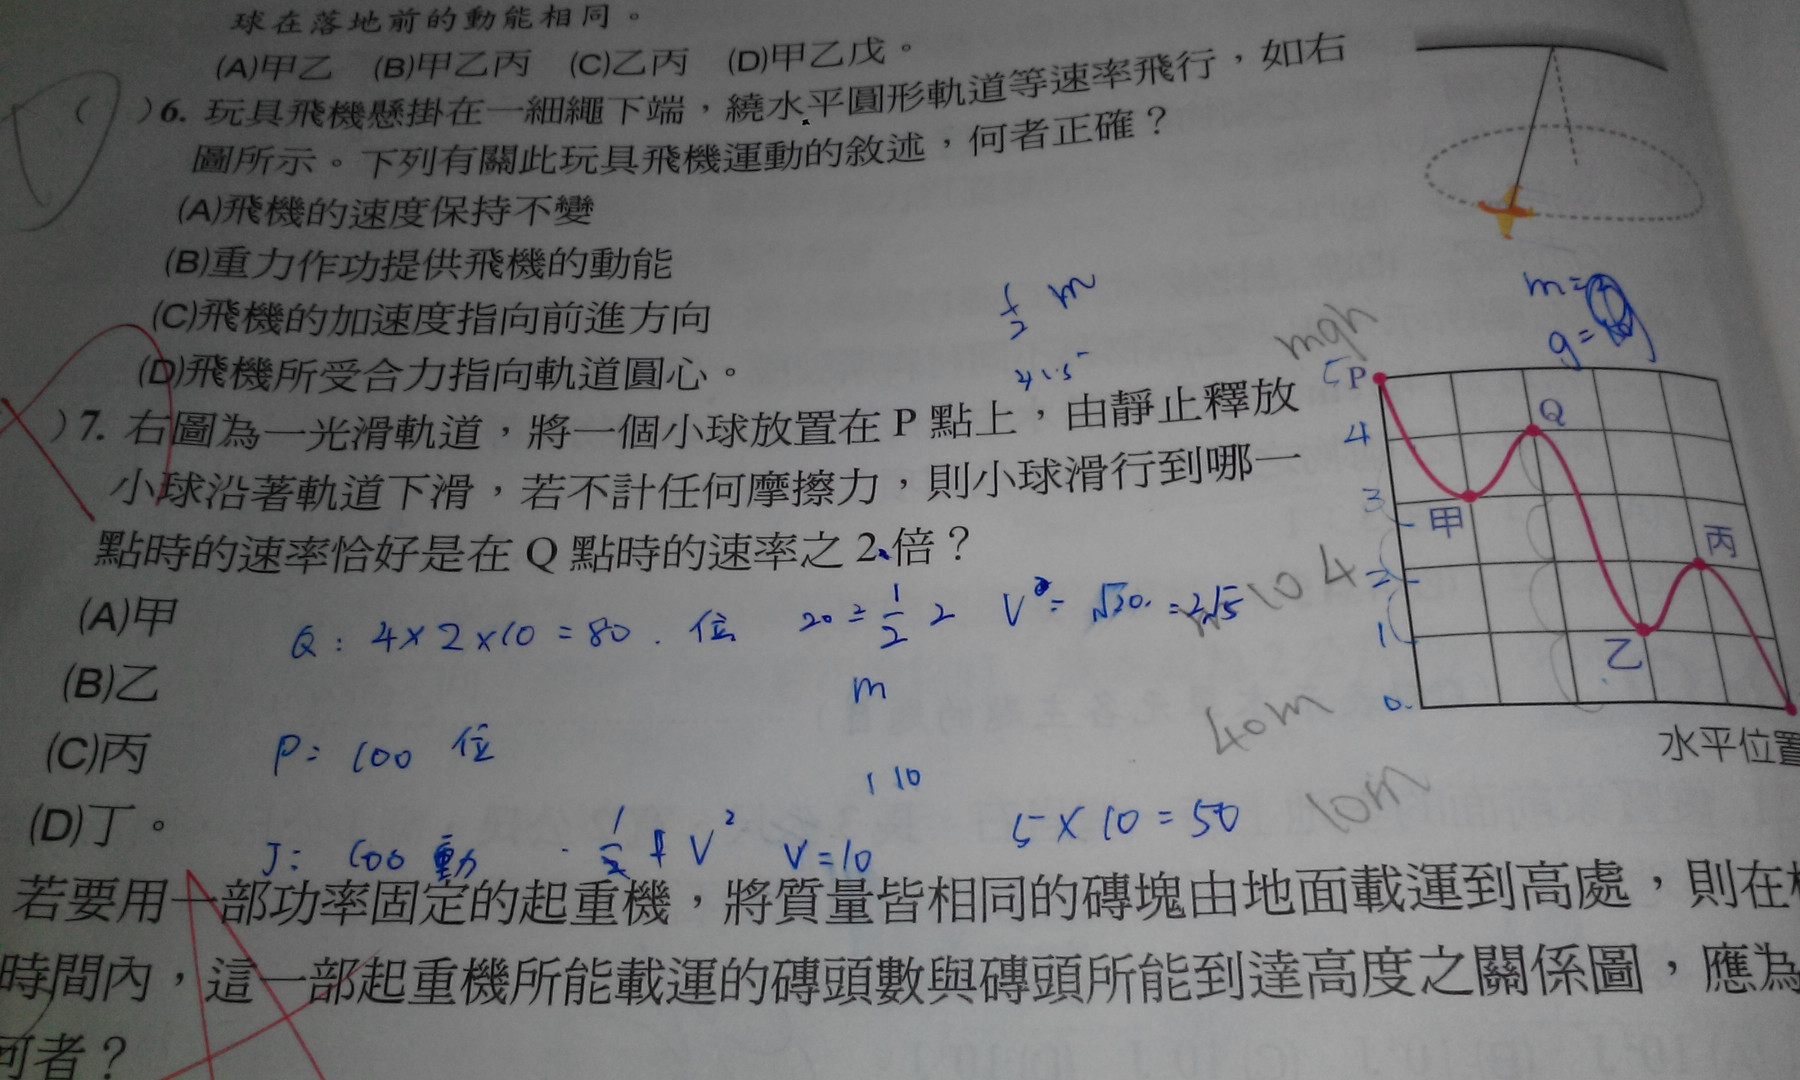 球在落地前的動能相同。
(A)甲乙 (B)甲乙丙 (C)乙丙 (D)甲乙戊。
( )6. 玩具飛機懸掛在一細繩下端，繞水平圓形軌道等速率飛行，如右
圖所示。下列有關此玩具飛機運動的敘述，何者正確？
(A)飛機的速度保持不變
(B)重力作功提供飛機的動能
(C)飛機的加速度指向前進方向
(D)飛機所受合力指向軌道圓心。
)7. 右圖為一光滑軌道，將一個小球放置在 P 點上，由靜止釋放
小球沿著軌道下滑，若不計任何摩擦力，則小球滑行到哪一
點時的速率恰好是在 Q 點時的速率之 2 倍？
(A)甲
(B)乙
(C)丙
(D)丁。
m=
g=
mgh
5 P
Q
4
3
甲
2
丙
1
乙
0.
水平位置
1/2 m
Q : 4×2×10 = 80 . 位
20 = 1/2 2 V² = √20. = 2√5
m
P = 100 位
1 10
J: 100 動
V² V=10
5×10=50
104
40m
10m
若要用一部功率固定的起重機，將質量皆相同的磚塊由地面載運到高處，則在
時間內，這一部起重機所能載運的磚頭數與磚頭所能到達高度之關係圖，應為
何者？